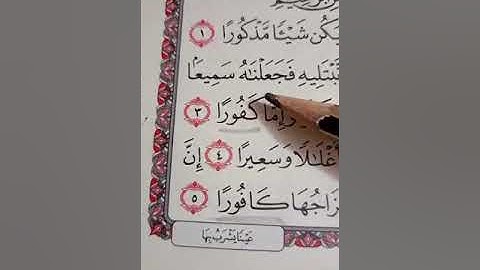 يَكُن شَيْـًٔا مَّذْكُورًا ١
نَّبْتَلِيهِ فَجَعَلْنَٰهُ سَمِيعَۢا
إِمَّا كَفُورًا ٣
أَغْلَٰلًا وَسَعِيرًا ٤ إِنَّ
زَاجُهَا كَافُورًا ٥
عَيْنًا يَشْرَبُ بِهَا